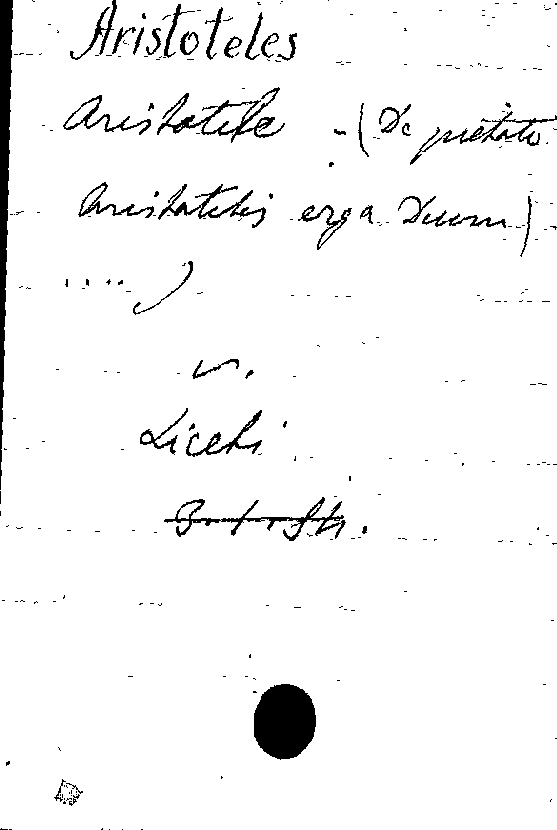 Aristoteles
Aristotele - (De pietate
Aristotelis erga Deum)
....)
v.
Liceti